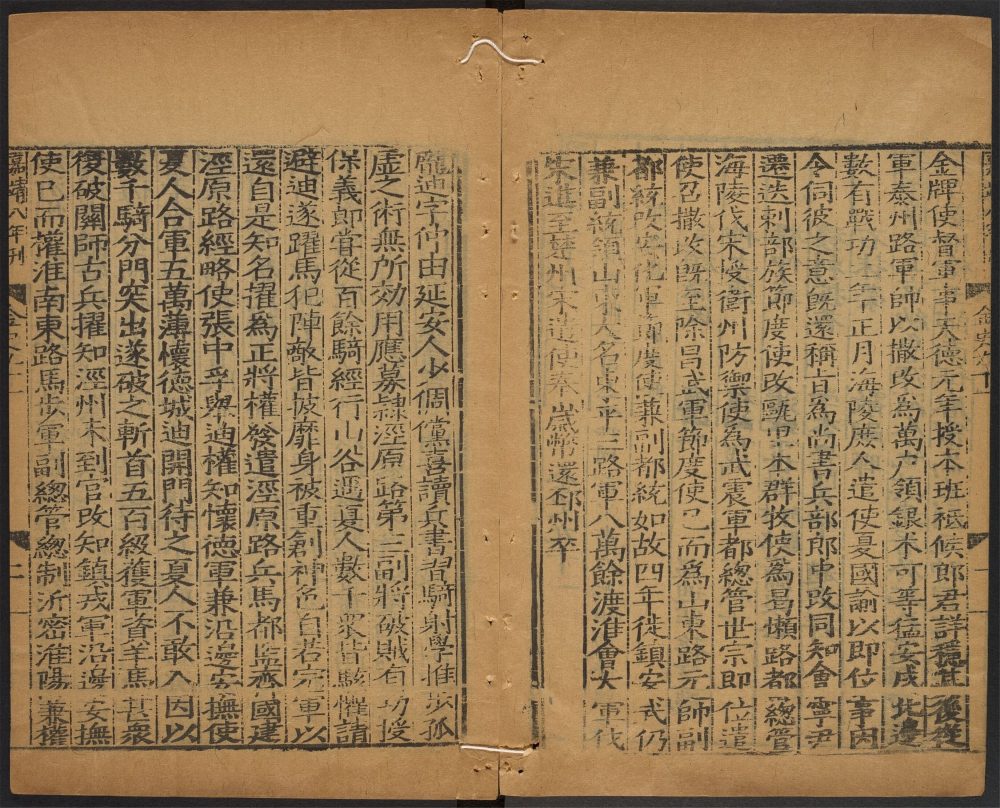 金牌使督軍事天德元年授本班祗候郎君詳穩其後從
軍泰州路軍帥以撒改為萬户領銀术可等猛安戍北邊
數有戰功二年正月海陵庶人遣使夏國諭以即位事因
令伺彼之意既還稱旨為尚書兵部郎中改同知會寧尹
遷迭剌部族節度使改甌里本群牧使為曷懶路都總管
海陵伐宋授衛州防禦使為武震軍都總管世宗即位遣
使召撒改既至除昌武軍節度使已而為山東路元帥副
都統改安化軍節度使兼副都統如故四年徙鎮安武仍
兼副統領山東大名東平三路軍八萬餘渡淮會大軍伐
宋進至楚州宋遣使奉歲幣還邳州卒
龐迪字仲由延安人少倜儻喜讀兵書習騎射學推步孤
虛之術無所効用應募隸涇原路第三副將破賊有功授
保義郎嘗從百餘騎經行山谷遇夏人數千衆皆駭懼請
避迪遂躍馬犯陣敵皆披靡身被重創神色自若完軍以
還自是知名擢為正將權發遣涇原路兵馬都監齊國建
涇原路經略使張中孚與迪權知懷德軍兼沿邊安撫使
夏人合軍五萬薄懷德城迪開門待之夏人不敢入因以
數千騎分門突出遂破之斬首五百級獲軍資羊馬甚衆
復破關師古兵擢知涇州未到官改知鎮戎軍沿邊安撫
使已而權淮南東路馬步軍副總管總制沂密淮陽兼權
嘉靖八年刊
二